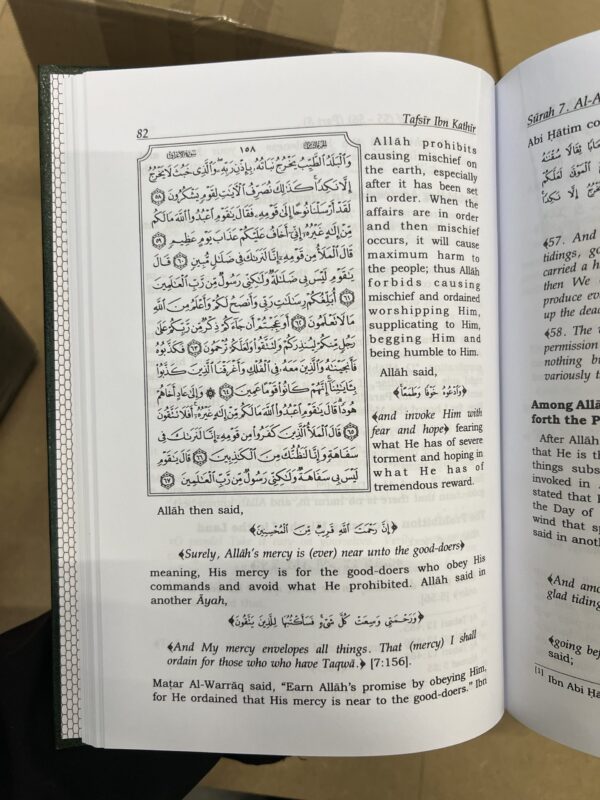 82
Tafsīr Ibn Kathīr
١٥٨
وَالْبَلَدُ الطَّيِّبُ يَخْرُجُ نَبَاتُهُ بِإِذْنِ رَبِّهِ وَالَّذِي خَبُثَ لَا يَخْرُجُ
إِلَّا نَكِدًا كَذَلِكَ نُصَرِّفُ الْآيَاتِ لِقَوْمٍ يَشْكُرُونَ ٥٨
لَقَدْ أَرْسَلْنَا نُوحًا إِلَى قَوْمِهِ فَقَالَ يَاقَوْمِ اعْبُدُوا اللَّهَ مَا لَكُم
مِّنْ إِلَهٍ غَيْرُهُ إِنِّي أَخَافُ عَلَيْكُمْ عَذَابَ يَوْمٍ عَظِيمٍ ٥٩
قَالَ الْمَلَأُ مِن قَوْمِهِ إِنَّا لَنَرَاكَ فِي ضَلَالٍ مُّبِينٍ ٦٠ قَالَ
يَاقَوْمِ لَيْسَ بِي ضَلَالَةٌ وَلَكِنِّي رَسُولٌ مِّن رَّبِّ الْعَالَمِينَ
٦١ أُبَلِّغُكُمْ رِسَالَاتِ رَبِّي وَأَنصَحُ لَكُمْ وَأَعْلَمُ مِنَ اللَّهِ
مَا لَا تَعْلَمُونَ ٦٢ أَوَعَجِبْتُمْ أَن جَاءَكُمْ ذِكْرٌ مِّن رَّبِّكُمْ عَلَى
رَجُلٍ مِّنكُمْ لِيُنذِرَكُمْ وَلِتَتَّقُوا وَلَعَلَّكُمْ تُرْحَمُونَ ٦٣ فَكَذَّبُوهُ
فَأَنجَيْنَاهُ وَالَّذِينَ مَعَهُ فِي الْفُلْكِ وَأَغْرَقْنَا الَّذِينَ كَذَّبُوا
بِآيَاتِنَا إِنَّهُمْ كَانُوا قَوْمًا عَمِينَ ٦٤ وَإِلَى عَادٍ أَخَاهُمْ
هُودًا قَالَ يَاقَوْمِ اعْبُدُوا اللَّهَ مَا لَكُم مِّنْ إِلَهٍ غَيْرُهُ أَفَلَا تَتَّقُونَ
٦٥ قَالَ الْمَلَأُ الَّذِينَ كَفَرُوا مِن قَوْمِهِ إِنَّا لَنَرَاكَ فِي
سَفَاهَةٍ وَإِنَّا لَنَظُنُّكَ مِنَ الْكَاذِبِينَ ٦٦ قَالَ يَاقَوْمِ
لَيْسَ بِي سَفَاهَةٌ وَلَكِنِّي رَسُولٌ مِّن رَّبِّ الْعَالَمِينَ ٦٧
Allāh prohibits
causing mischief on
the earth, especially
after it has been set
in order. When the
affairs are in order
and then mischief
occurs, it will cause
maximum harm to
the people; thus Allāh
forbids causing
mischief and ordained
worshipping Him,
supplicating to Him,
begging Him and
being humble to Him.
Allāh said,
﴿وَادْعُوهُ خَوْفًا وَطَمَعًا﴾
﴾and invoke Him with
fear and hope﴿ fearing
what He has of severe
torment and hoping in
what He has of
tremendous reward.
Allāh then said,
﴿إِنَّ رَحْمَتَ اللَّهِ قَرِيبٌ مِّنَ الْمُحْسِنِينَ﴾
﴾Surely, Allāh's mercy is (ever) near unto the good-doers﴿
meaning, His mercy is for the good-doers who obey His
commands and avoid what He prohibited. Allāh said in
another Āyah,
﴿وَرَحْمَتِي وَسِعَتْ كُلَّ شَيْءٍ فَسَأَكْتُبُهَا لِلَّذِينَ يَتَّقُونَ﴾
﴾And My mercy envelopes all things. That (mercy) I shall
ordain for those who who have Taqwā.﴿ [7:156].
Maṭar Al-Warrāq said, "Earn Allāh's promise by obeying Him,
for He ordained that His mercy is near to the good-doers." Ibn
Sūrah 7. Al-A
Abi Ḥātim co
﴾57. And
tidings, go
carried a h
then We
produce ev
up the dea
﴾58. The
permission
nothing b
variously t
Among Allā
forth the P
After Allāh
that He is th
things subs
invoked in
stated that
the Day of
wind that sp
said in anot
﴾And amo
glad tiding
﴾going bef
said;
[1] Ibn Abi Ḥā